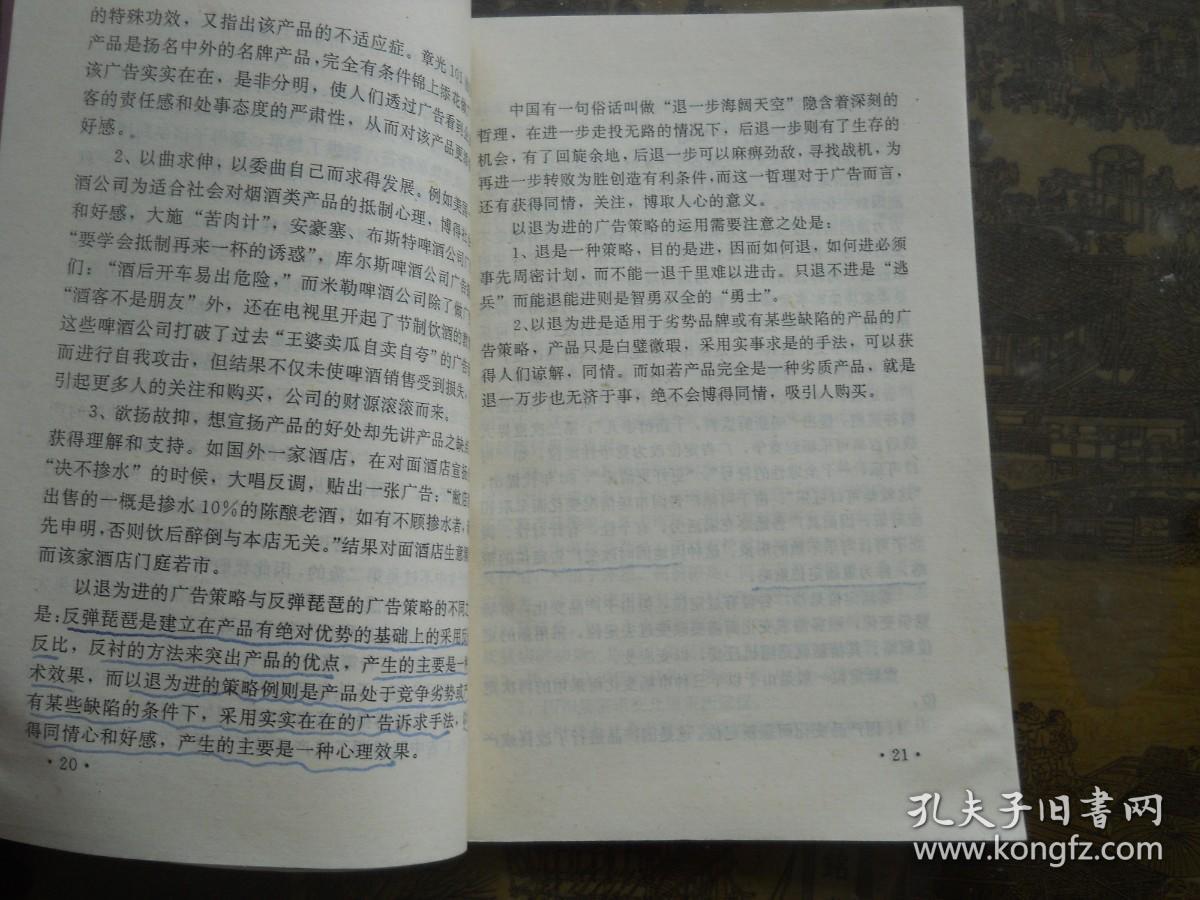 的特殊功效，又指出该产品的不适应症。章光101
产品是扬名中外的名牌产品，完全有条件锦上添花
该广告实实在在，是非分明，使人们透过广告看到
客的责任感和处事态度的严肃性，从而对该产品更
好感。
2、以曲求伸，以委曲自己而求得发展。例如美国
酒公司为适合社会对烟酒类产品的抵制心理、博得社
和好感，大施“苦肉计”，安豪塞、布斯特啤酒公司广
“要学会抵制再来一杯的诱惑”，库尔斯啤酒公司广告
们：“酒后开车易出危险，”而米勒啤酒公司除了做广
“酒客不是朋友”外，还在电视里开起了节制饮酒的
这些啤酒公司打破了过去“王婆卖瓜自卖自夸”的广告
而进行自我攻击，但结果不仅未使啤酒销售受到损失，
引起更多人的关注和购买，公司的财源滚滚而来。
3、欲扬故抑，想宣扬产品的好处却先讲产品之缺
获得理解和支持。如国外一家酒店，在对面酒店宣扬
“决不掺水”的时候，大唱反调，贴出一张广告：“敝店
出售的一概是掺水10%的陈酿老酒，如有不顾掺水者，
先申明，否则饮后醉倒与本店无关。”结果对面酒店生意
而该家酒店门庭若市。
以退为进的广告策略与反弹琵琶的广告策略的不同
是：反弹琵琶是建立在产品有绝对优势的基础上的采用反
反比，反衬的方法来突出产品的优点，产生的主要是一种
术效果，而以退为进的策略例则是产品处于竞争劣势或
有某些缺陷的条件下，采用实实在在的广告诉求手法，
得同情心和好感，产生的主要是一种心理效果。
·20·
中国有一句俗话叫做“退一步海阔天空”隐含着深刻的
哲理，在进一步走投无路的情况下，后退一步则有了生存的
机会，有了回旋余地，后退一步可以麻痹劲敌，寻找战机，为
再进一步转败为胜创造有利条件，而这一哲理对于广告而言，
还有获得同情，关注，博取人心的意义。
以退为进的广告策略的运用需要注意之处是：
1、退是一种策略，目的是进，因而如何退，如何进必须
事先周密计划，而不能一退千里难以进击。只退不进是“逃
兵”而能退能进则是智勇双全的“勇士”。
2、以退为进是适用于劣势品牌或有某些缺陷的产品的广
告策略，产品只是白璧微瑕，采用实事求是的手法，可以获
得人们谅解，同情。而如若产品完全是一种劣质产品，就是
退一万步也无济于事，绝不会博得同情，吸引人购买。
·21·
孔夫子旧书网
www.kongfz.com